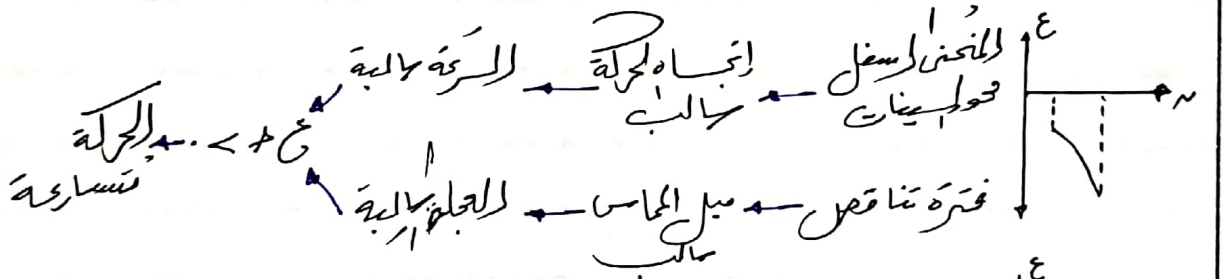 ع
المنحنى أسفل محور السينات ← إتجاه الحركة سالب ← السرعة سالبة
فترة تناقص ← ميل المماس سالب ← العجلة سالبة
ن
ع ح > ٠ ← الحركة متسارعة
ع